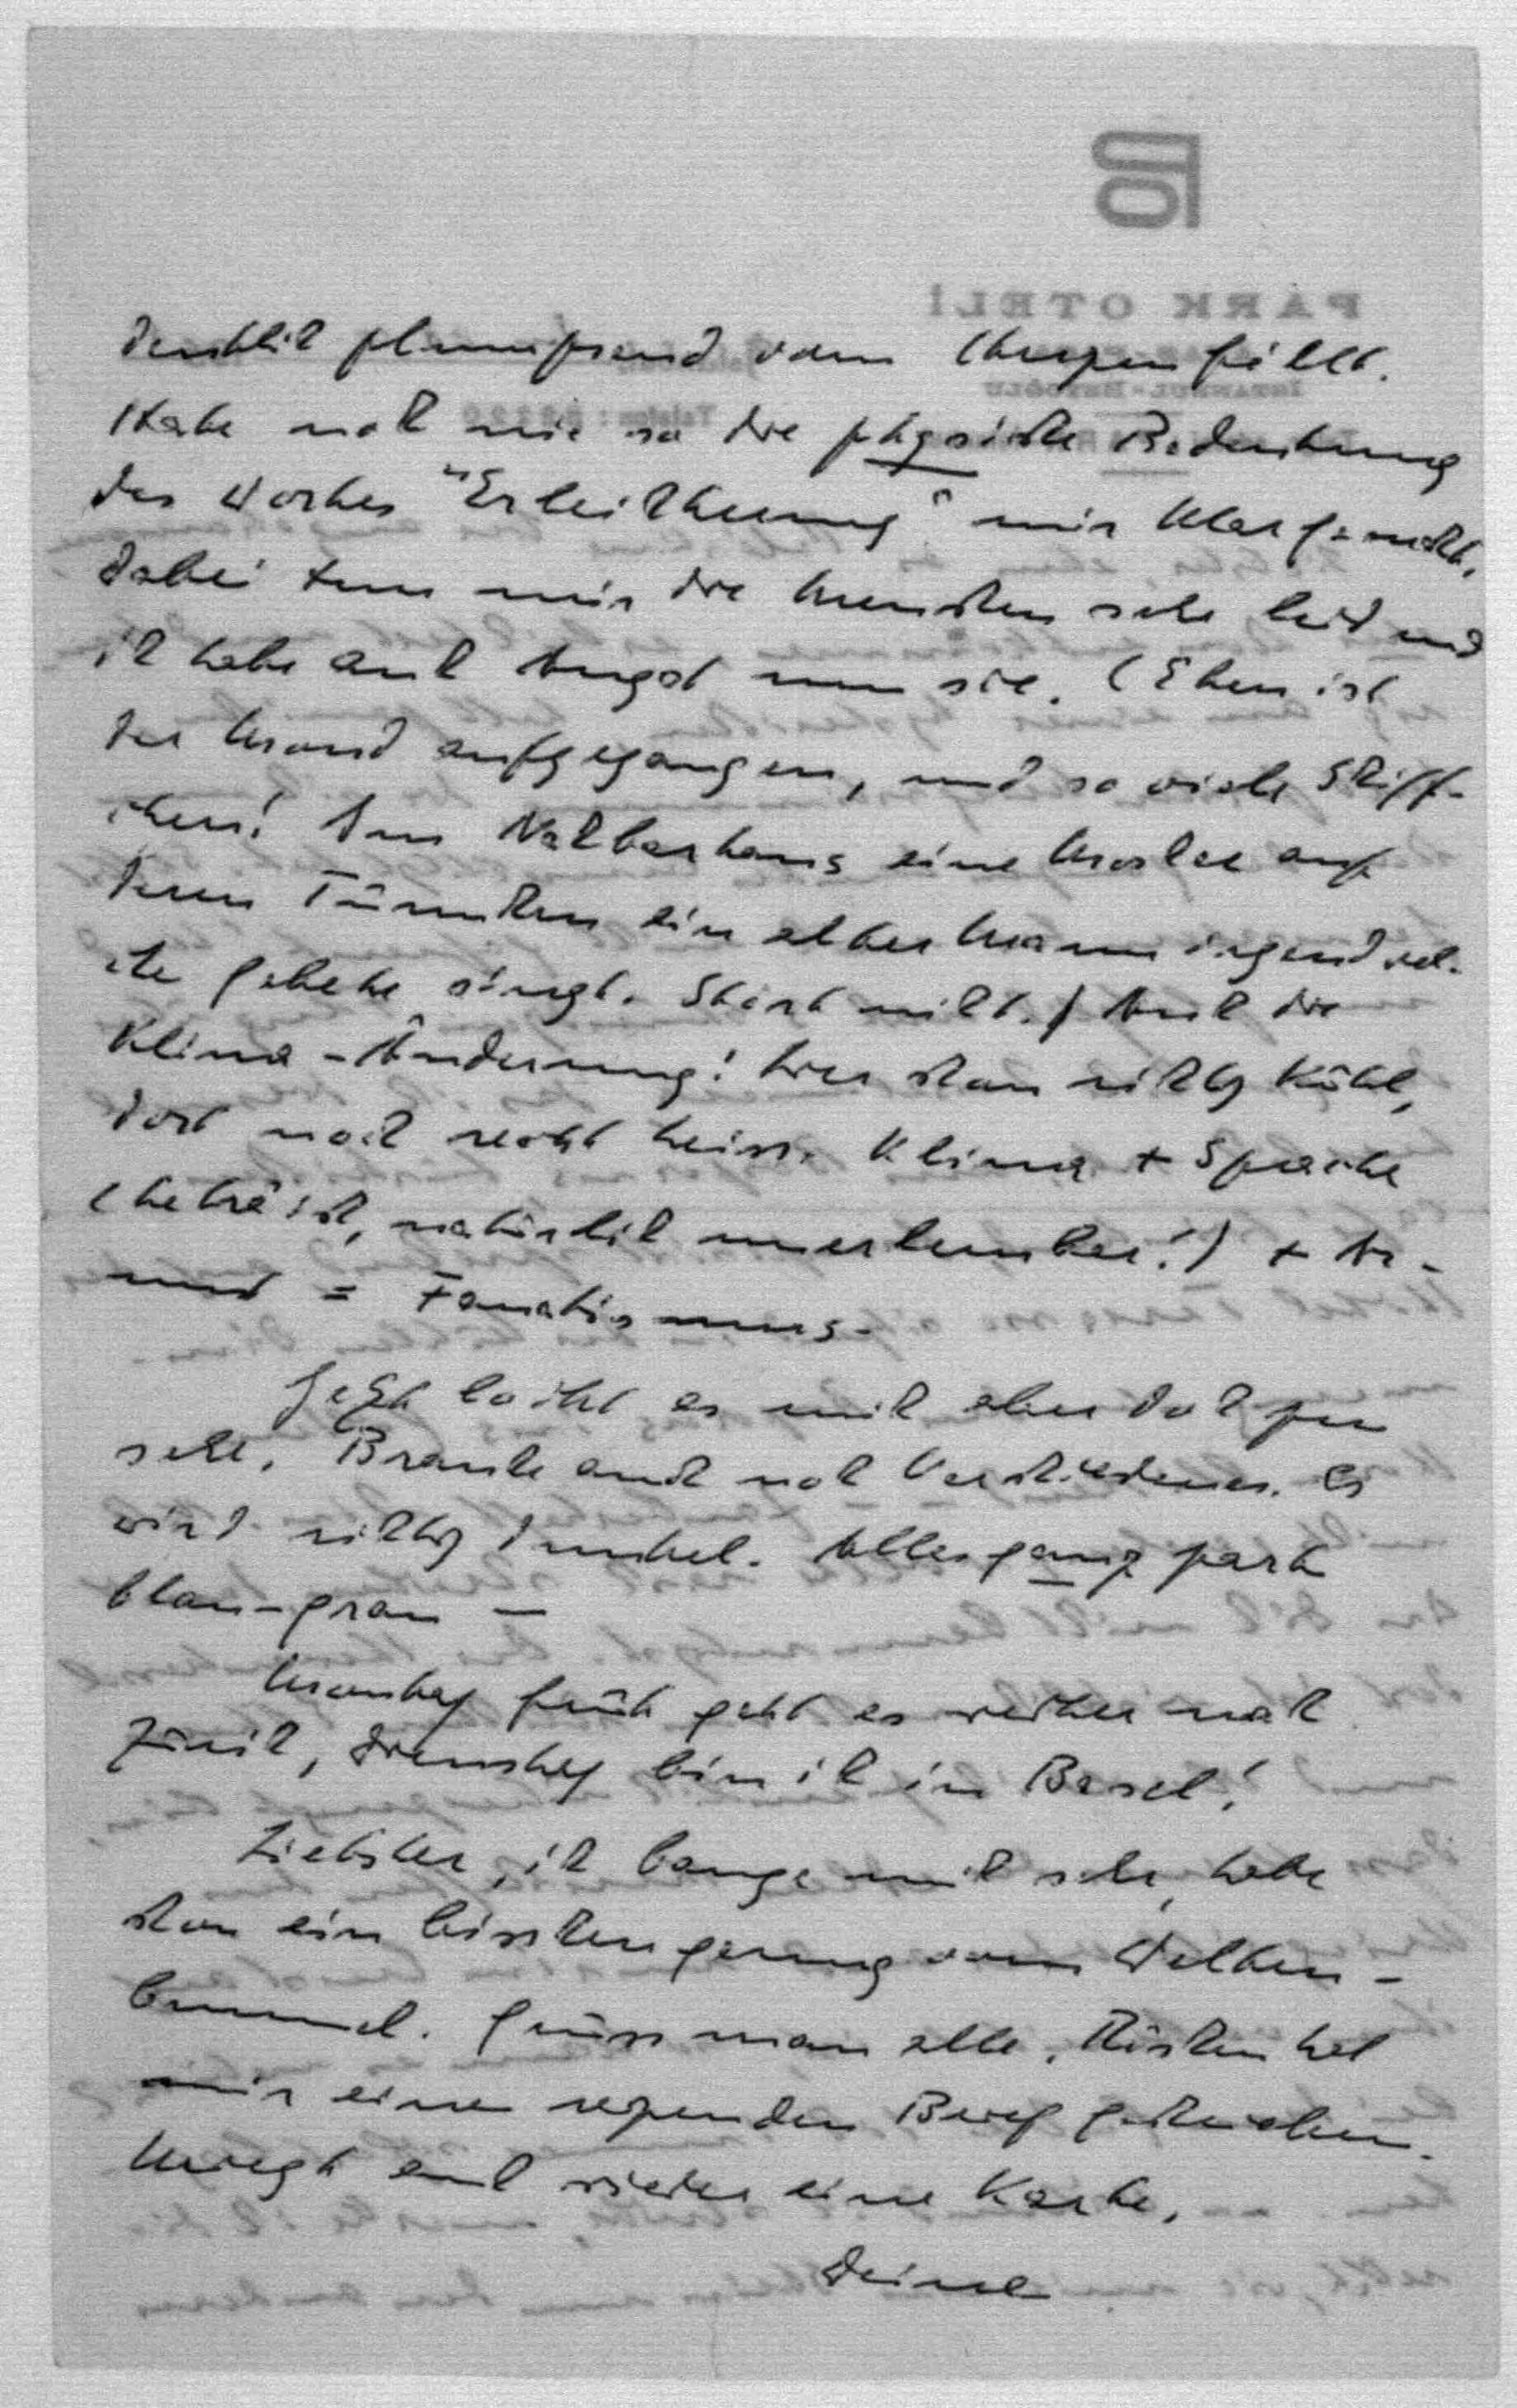 deutlich plumpsend vom Herzen fällt.
Habe noch nie so die physische Bedeutung
des Wortes "Erleichterung" mir klar gemacht,
dabei tun mir die Menschen sehr leid und
ich habe auch Angst um sie. (Eben ist
der Mond aufgegangen, und so viele Schiff-
chen! Am Nachbarhaus eine Moschee auf
deren Türmchen ein alter Mann irgend wel-
che Gebete singt. Stört nicht.) Auch die
Klima-Änderung! Hier schon richtig kühl,
dort noch recht heiss. Klima + Sprache
(hebräisch, natürlich unerlernbar!) + Ar-
mut = Fanatismus-
Jetzt lockt es mich aber doch zu
sehr. Brauche auch noch Verschiedenes. Es
wird richtig dunkel. Alles ganz zart
blau-grau —
Montag früh geht es weiter nach
Zürich, Dienstag bin ich in Basel!
Liebster, ich bange mich sehr, habe
schon ein bisschen genug vom Welten-
bummel. Grüss man alle.
mir einen reizenden Brief geschrieben.
Kriegt auch wieder eine Karte.
Deine
PARK OTELİ
ISTANBUL - BEYOĞLU